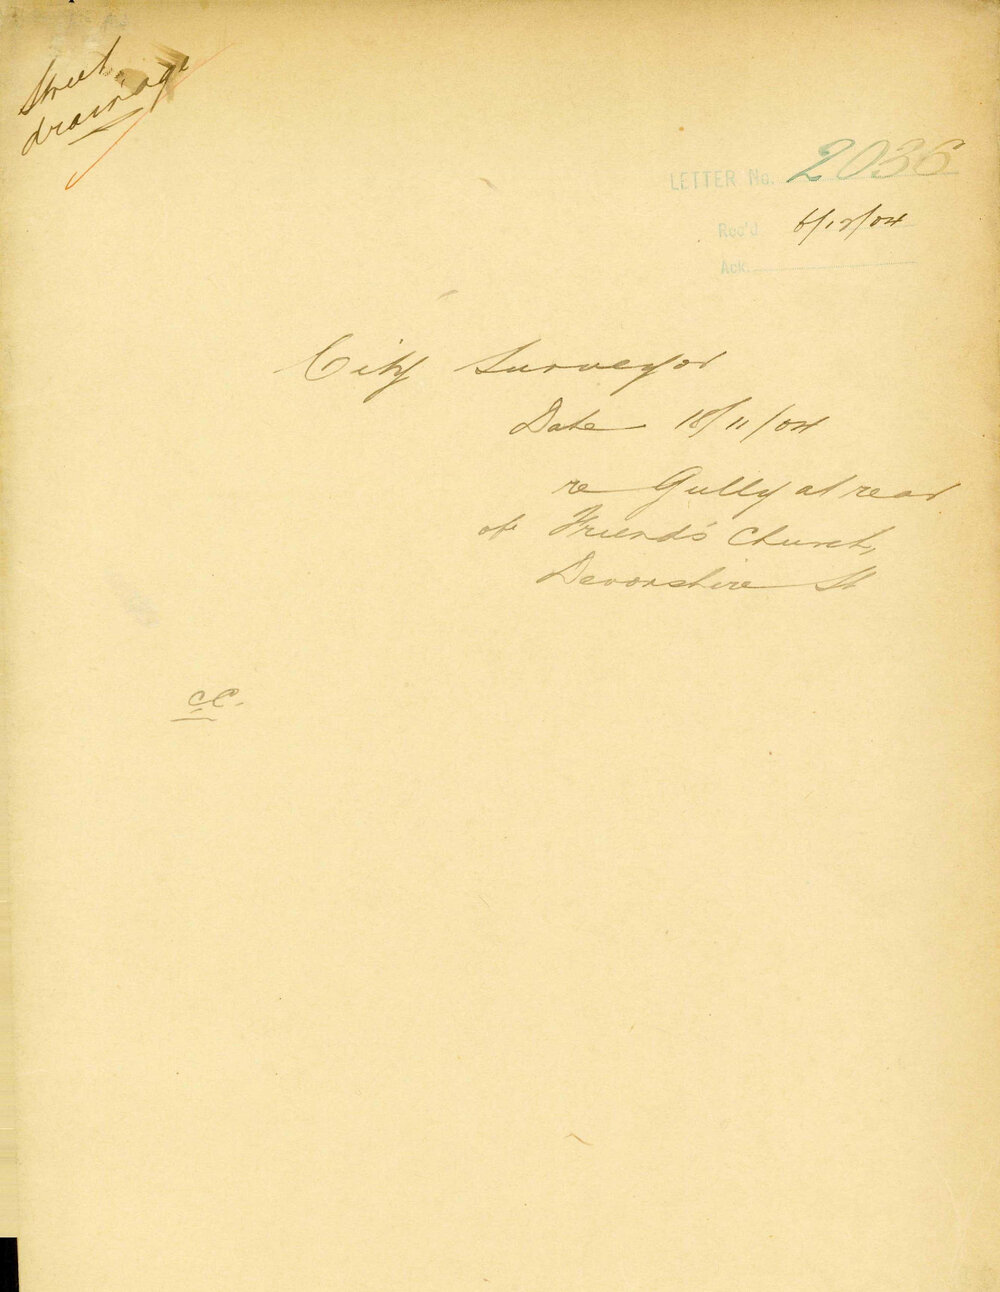 Street
drainage
LETTER No. 2036
Rec'd. 6/12/04
Ack.
City Surveyor
Date 18/11/04
re Gully at rear
of Friend's Church,
Devonshire St
C.C.